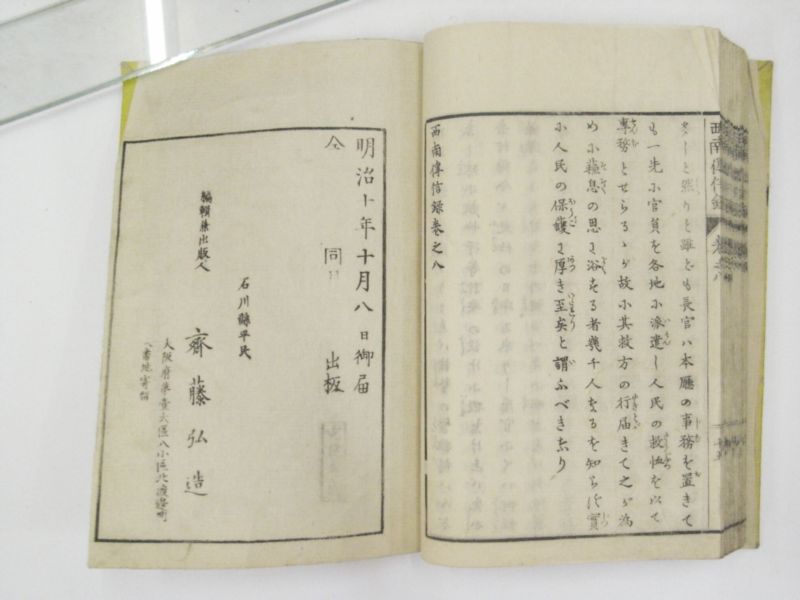 多しと然りと雖ども長官ハ本廳の事務を置きて
も一先小官員を各地小派遣し人民の救恤を以て
専務とせらるゝが故小其救方の行届きて之が為
め小蘓息の思を浴する者幾千人なるを知らず實
小人民の保護を厚き至矣と謂ふべきなり
西南傳信録巻之八
西南傳信録
明治十年十月八日御届
仝 同日 出板
石川縣平民
編輯兼出版人 齊藤弘造
大阪府第壹大區八小區北渡邊町
八番地寄留